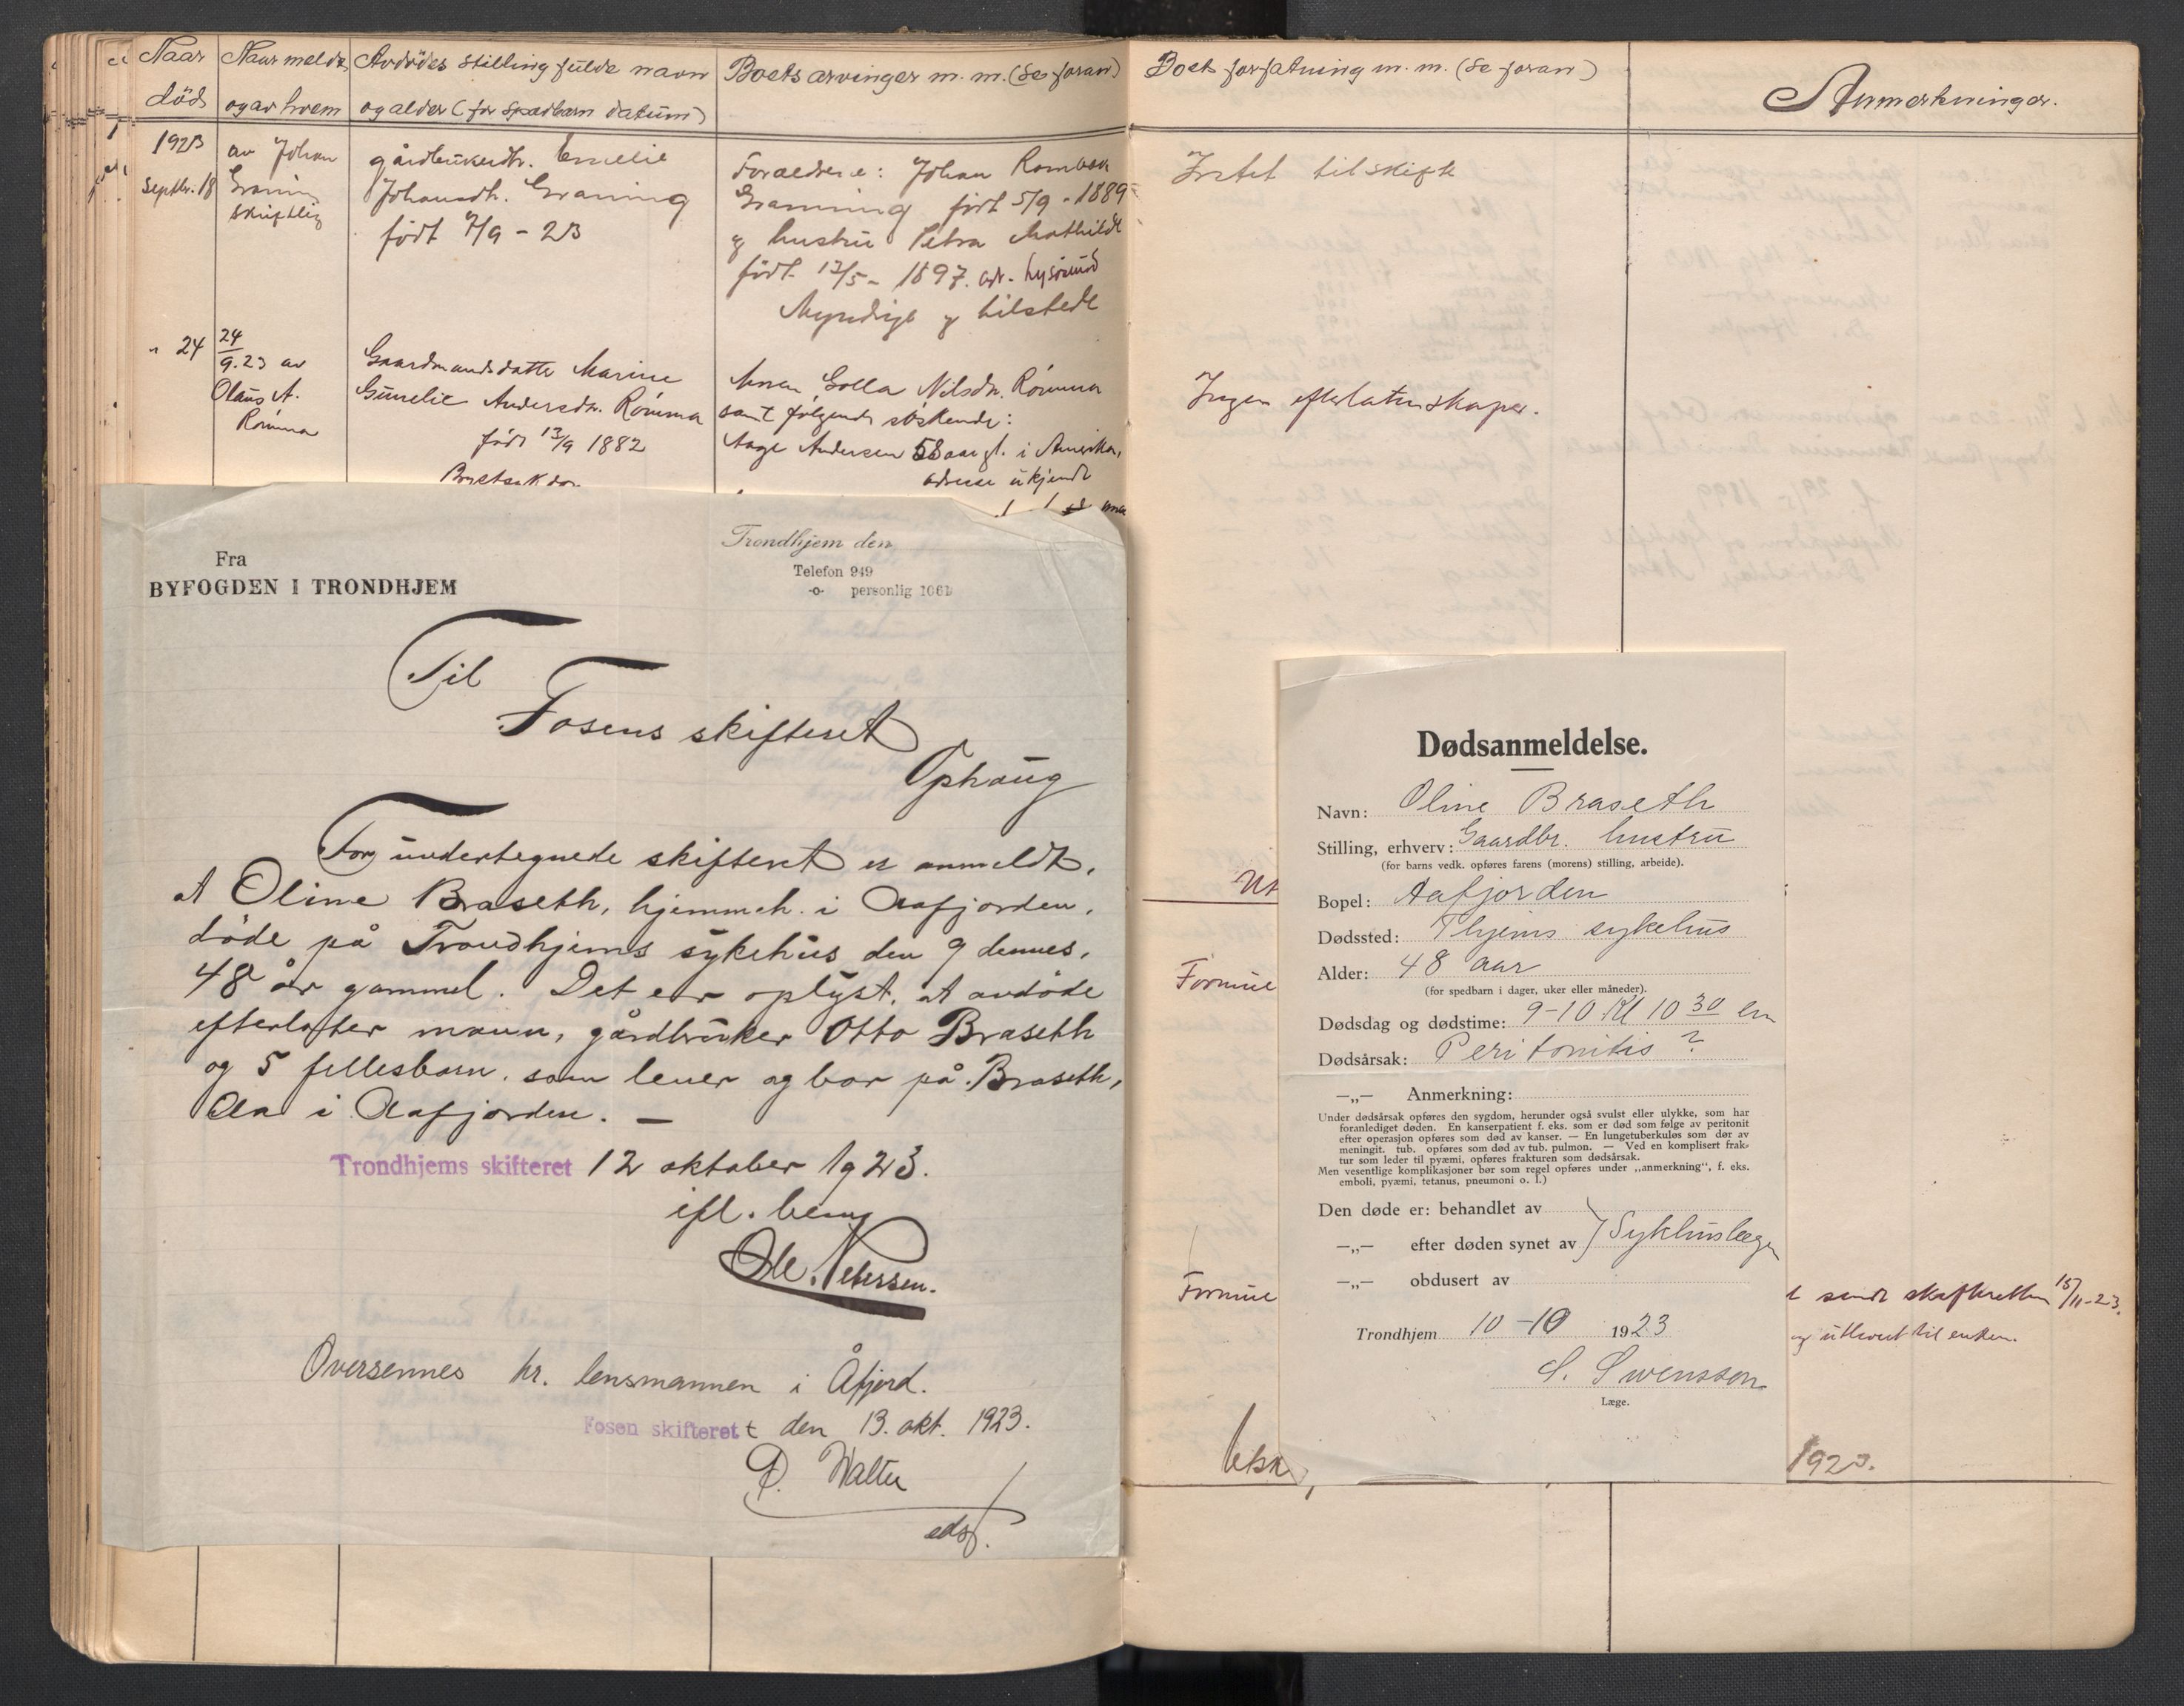 Naar
död
Naar meldt
og av hvem
Avdödes stilling fulde navn
og alder (for spædbarn datum)
Boets arvinger m.m. (se foran)
Boets forfatning m.m. (se foran)
Anmerkninger.
1923
Septbr. 18
av Johan
Graning
skriftlig
gårdbrukerdtr. Emelie
Johansdtr. Graning
født 7/9 - 23
Forældrene: Johan
Graning født 5/9 - 1889
og hustru Petra Mathilde
født 12/5 - 1897. adr. Lysøsund
Myndige og tilstede
Intet til skifte
" 24
24
9.23 av
Olaus A.
Rømma
Gaardmandsdatter Marine
Gunelie Andersdtr. Rømma
født 13/9 1882
Moren, Golla Nilsdtr. Rømma
samt følgende søskende:
Aage Andersen 58 aar gl. i Amerika,
adresse ukjendt
Ingen efterlatenskaper.
Fra
BYFOGDEN I TRONDHJEM
Trondhjem den
Telefon 949
-o- personlig 1061
Til
Fosens skifteret
Ophaug
For undertegnede skifteret er anmeldt,
at Oline Braseth, hjemmeh. i Aafjorden,
døde på Trondhjems sykehus den 9 dennes,
48 år gammel. Det er oplyst, at avdøde
efterlater mann, gårdbruker Otto Braseth
og 5 fellesbarn, som lever og bor på Braseth,
Aa i Aafjorden. —
Trondhjems skifteret 12 oktober 1923.
efl. bem
Ole. Petersen.
Oversennes hr. lensmannen i Åfjord.
Fosen skifterett den 13. okt. 1923.
P. Walter
edsf.
Dødsanmeldelse.
Navn: Oline Braseth
Stilling, erhverv: Gaardbr. hustru
(for barns vedk. opføres farens (morens) stilling, arbeide).
Bopel: Aafjorden
Dødssted: Thjems sykehus
Alder: 48 aar
(for spedbarn i dager, uker eller måneder).
Dødsdag og dødstime: 9-10 Kl 10 30 em
Dødsårsak: Peritonitis?
—„— Anmerkning:
Under dødsårsak opføres den sygdom, herunder også svulst eller ulykke, som har
foranlediget døden. En kanserpatient f. eks. som er død som følge av peritonit
efter operasjon opføres som død av kanser. — En lungetuberkuløs som dør av
meningit. tub. opføres som død av tub. pulmon. — Ved en komplisert frak-
tur som leder til pyæmi, opføres frakturen som dødsårsak.
Men vesentlige komplikasjoner bør som regel opføres under „anmerkning“, f. eks.
emboli, pyæmi, tetanus, pneumoni o. l.)
Den døde er: behandlet av
—„— efter døden synet av } Sykehuslægen
—„— obdusert av
Trondhjem 10-10 1923
S. Swensson
Læge.
Formue
Formue
sendt skifteretten 15/11-23.
og utlevert til enken.
1923.